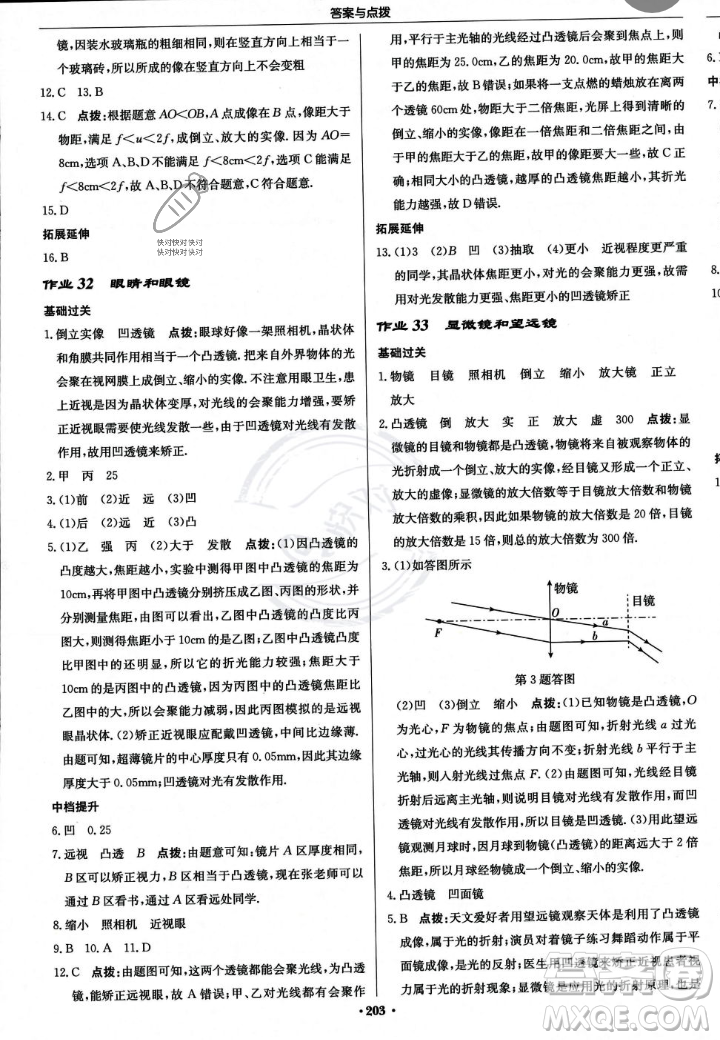 答案与点拨
镜,因装水玻璃瓶的粗细相同,则在竖直方向上相当于一
个玻璃砖,所以所成的像在竖直方向上不会变粗
12.C 13.B
14.C 点拨:根据题意AO<OB,A点成像在B点,像距大于
物距,满足f<u<2f,成倒立、放大的实像.因为AO=
8cm,选项A、B、D不能满足f<8cm<2f,选项C能满足
f<8cm<2f,故A、B、D不符合题意,C符合题意.
15.D
快对快对快对
快对快对快对
拓展延伸
16.B
作业32 眼睛和眼镜
基础过关
1.倒立实像 凹透镜 点拨:眼球好像一架照相机,晶状体
和角膜共同作用相当于一个凸透镜.来自外界物体的光
会聚在视网膜上成倒立、缩小的实像.不注意用眼卫生,患
上近视是因为晶状体变厚,对光线的会聚能力增强,要矫
正近视眼需要使光线发散一些,由于凹透镜对光线有发散
作用,故用凹透镜来矫正.
2.甲 丙 25
3.(1)前 (2)近 远 (3)凹
4.(1)后 (2)远 (3)凸
5.(1)乙 强 丙 (2)大于 发散 点拨:(1)因凸透镜的
凸度越大,焦距越小,实验中测得甲图凸透镜的焦距为
10cm,再将甲图中凸透镜分别挤压成乙图、丙图的形状,并
分别测量焦距,由图可以看出,乙图中凸透镜的凸度比丙
图大,则测得焦距小于10cm的是乙图;乙图中凸透镜的焦
比甲图中的还明显,所以它的折光能力较强;焦距大于
10cm的是丙图中凸透镜,因为丙图中的凸透镜焦距比
乙图中的大,所以会聚能力减弱,因此丙图模拟的是远视
眼晶状体.(2)矫正近视眼应配戴凹透镜,中间比边缘薄.
由题可知,超薄镜片的中心厚度只有0.05mm,因此其边缘
厚度大于0.05mm;凹透镜对光有发散作用.
中档提升
6.凹 0.25
7.远视 凸透 B 点拨:由题意可知:镜片A区厚度相同,
B区可以矫正视力,B区是凸透镜,因此可以在张老师可以
通过B区看书,通过A区看远处同学.
8.缩小 照相机 近视眼
9.B 10.A 11.D
12.C 点拨:由题图可知,这两个透镜都能会聚光线,为凸透
镜,能矫正远视眼,故A错误;甲、乙对光线的折射都有会聚作
用,平行于主光轴的光线经过凸透镜会聚到焦点上,则
甲的焦距为25.0cm,乙的焦距为20.0cm,故甲的焦距大
于乙的焦距,故B错误;如果将一支点燃的蜡烛放在离两
个透镜60cm处,物距大于二倍焦距,光屏上得到清晰的
倒立、缩小的实像,像距大于一倍焦距,小于二倍焦距,因
甲的焦距大于乙的焦距,故甲的像距要大一些,故C正
确;相同大小的凸透镜,越厚的凸透镜焦距越小,其折光
能力越强,故D错误.
拓展延伸
13.(1)3 (2)B 凹 (3)抽取 (4)更小 近视程度更严重
的同学,其晶状体焦距更小,对光的会聚能力更强,故需要
对光发散能力更强、焦距更小的凹透镜矫正
作业33 显微镜和望远镜
基础过关
1.物镜 目镜 照相机 倒立 缩小 放大镜 正立
放大
2.凸透镜 倒 放大 实 正 放大 虚 300 点拨:显
微镜的目镜和物镜都是凸透镜,来自被观察物体的
光折射成一个倒立、放大的实像,经目镜又形成一个正立、放
大的虚像;显微镜的放大倍数等于目镜放大倍数和物镜
放大倍数的乘积,因此如果物镜的放大倍数是20倍,目镜
放大倍数是15倍,则总的放大倍数为300倍.
3.(1)如答图所示
物镜
目镜
O
a
F
b
第3题答图
(2)凹 (3)倒立 缩小 点拨:(1)已知物镜是凸透镜,O
为光心,F为物镜的焦点;由题图可知,折射光线a过光
心,过光心的光线其传播方向不变;折射光线b平行于
主光轴,则入射光线过焦点F.(2)由题图可知,光线经过目
镜后都远离主光轴,则说明目镜对光线有发散作用,而凹透
镜对光线有发散作用,所以目镜是凹透镜.(3)用此望远
镜观测月球时,因月球到物镜(凸透镜)的距离远大于2倍
焦距,所以月球经物镜(凸透镜)成的像是倒立、缩小的实
像.
4.凸透镜 凹面镜
5.B 点拨:天文爱好者用望远镜观察天体是利用了凸透镜
成像,属于光的折射;演员对着镜子练习舞蹈动作属于平
面镜成像,属于光的反射;用凹透镜来矫正近视眼的视
力属于光的折射现象;显微镜是应用光的折射原理,也是
·203·